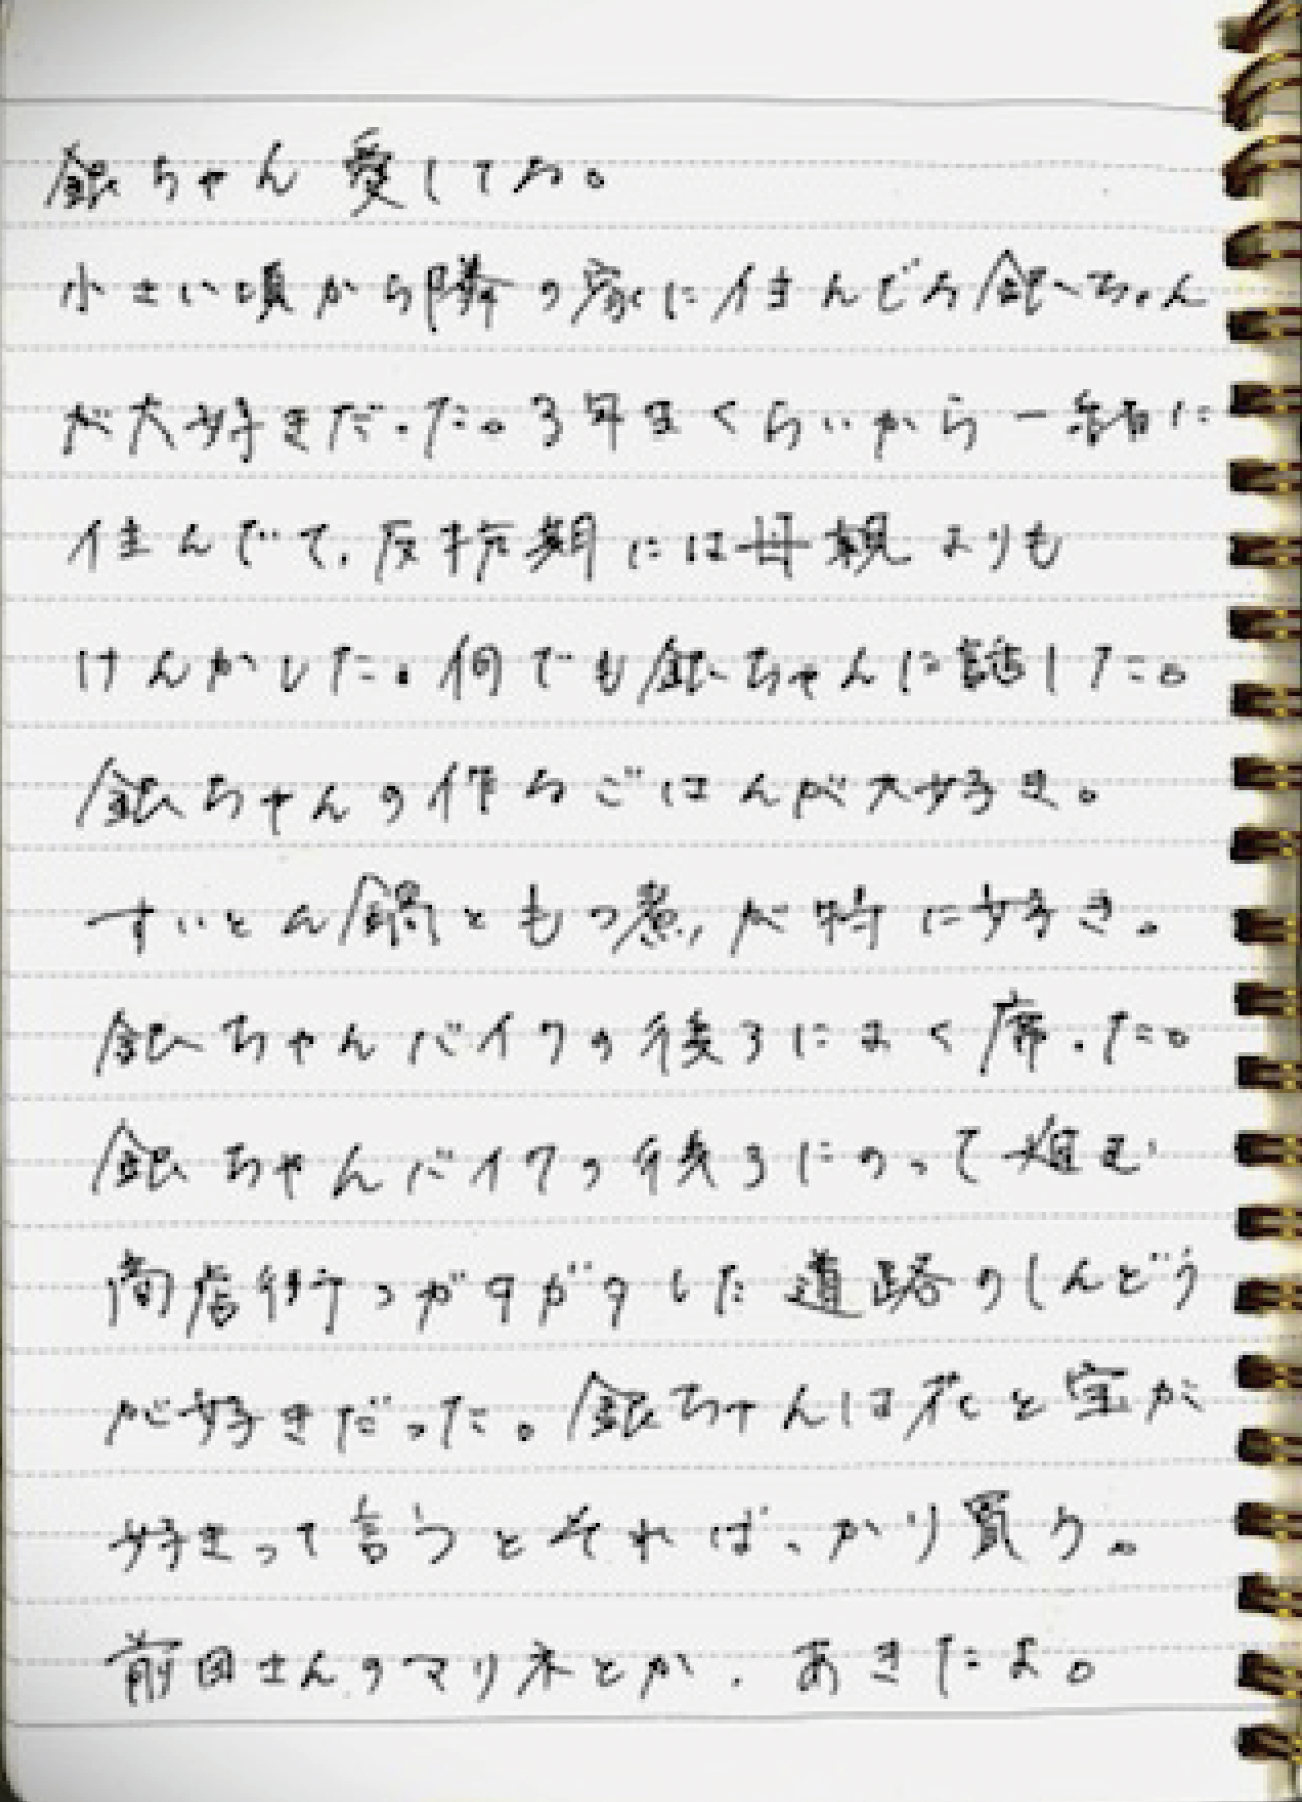 銀ちゃん愛してる。
小さい頃から隣の家に住んでる銀ちゃん
が大好きだった。3年生くらいから一緒に
住んでて、反抗期には母親よりも
けんかした。何でも銀ちゃんに話した。
銀ちゃんの作るごはんが大好き。
すいとん鍋ともつ煮が特に好き。
銀ちゃんバイクの後ろによく席った。
銀ちゃんバイクの後ろにのって
商店街のガタガタした道路のしんどう
が好きだった。銀ちゃんは花と宝が
好きって言うとそればっかり買う。
前田さんのマリネとか、あきたよ。